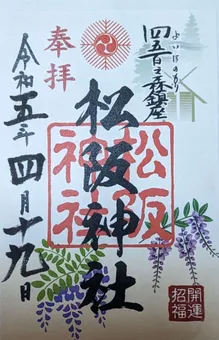 四五百の森鎮座
よいほのもり
奉拝
松阪神社
松阪神社
令和五年四月十九日
開運
招福